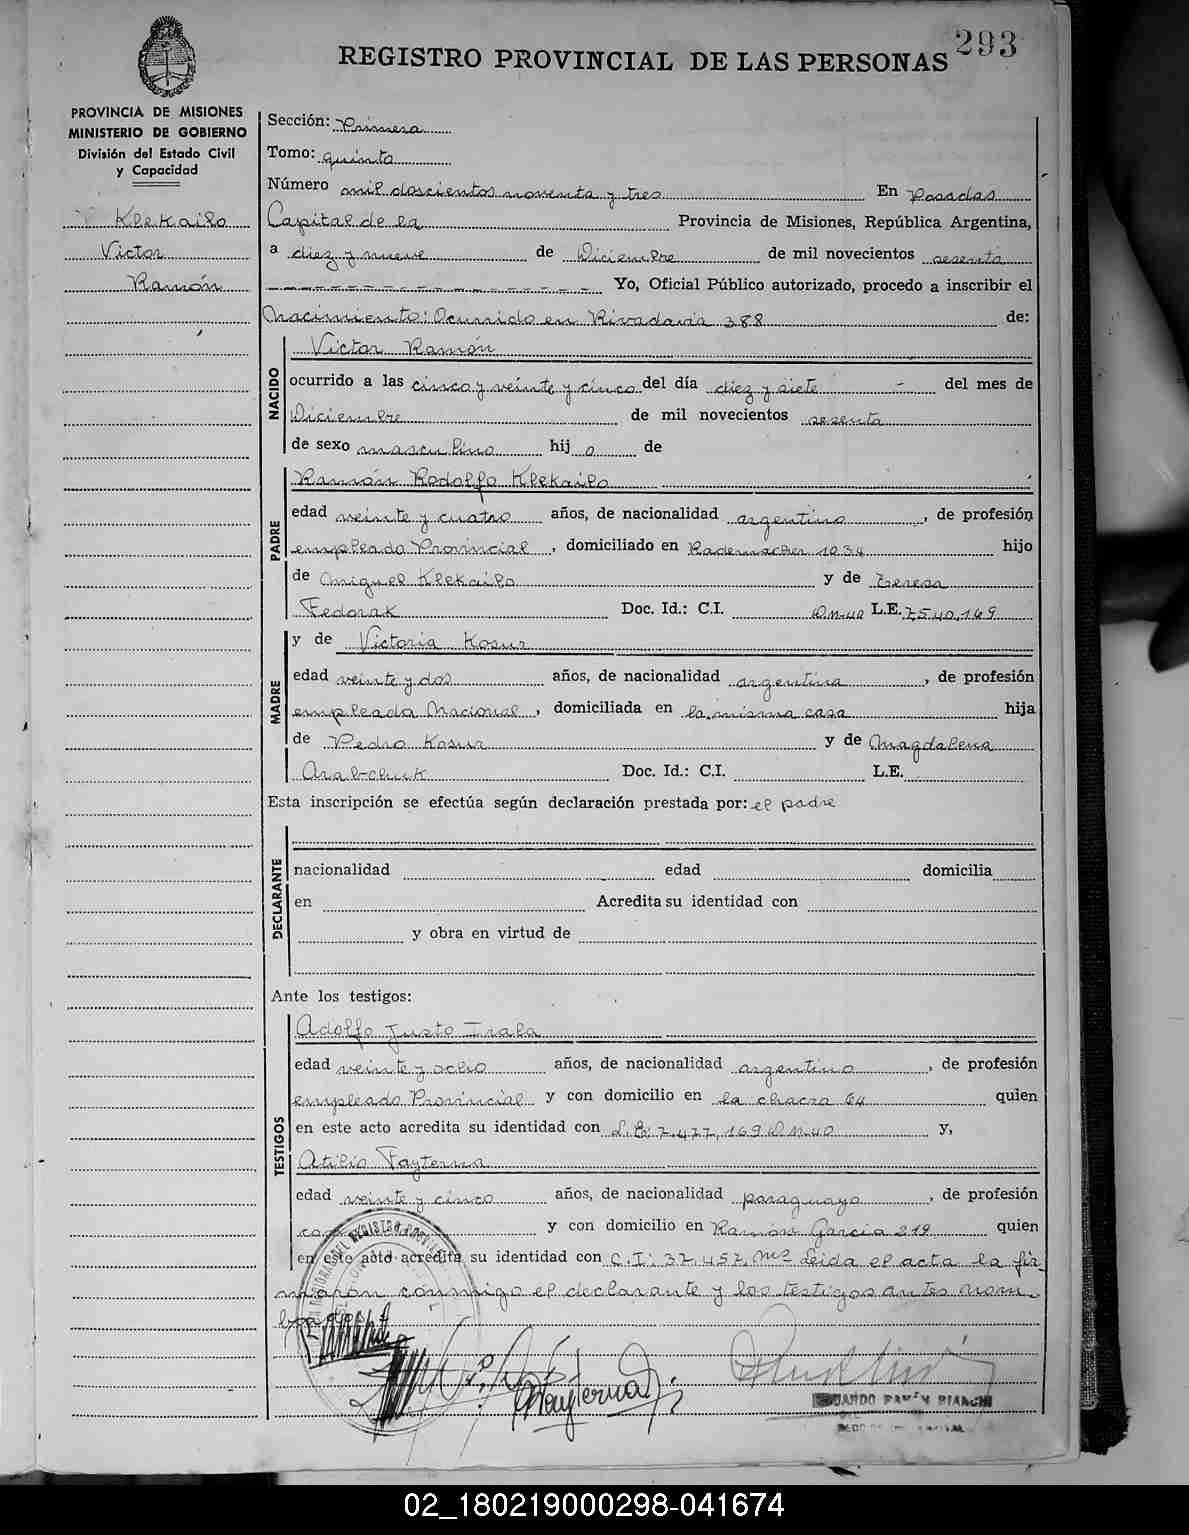 293
REGISTRO PROVINCIAL DE LAS PERSONAS
PROVINCIA DE MISIONES
MINISTERIO DE GOBIERNO
División del Estado Civil
y Capacidad
Klekailo
Victor
Ramón
Sección: Primera
Tomo: quinta
Número mil doscientos noventa y tres En Posadas
Capital de la Provincia de Misiones, República Argentina,
a diez y nueve de Diciembre de mil novecientos sesenta
Yo, Oficial Público autorizado, procedo a inscribir el
Nacimiento: Ocurrido en Rivadavia 388 de:
NACIDO
Victor Ramón
ocurrido a las cinco y veinte y cinco del día diez y siete del mes de
Diciembre de mil novecientos sesenta
de sexo masculino hij o de
PADRE
Ramón Rodolfo Klekailo
edad veinte y cuatro años, de nacionalidad argentino, de profesión
empleado Provincial, domiciliado en Rademacher 1034 hijo
de Miguel Klekailo y de Teresa
Fedorak Doc. Id.: C.I. L.E. 7,540,169
MADRE
y de Victoria Kosur
edad veinte y dos años, de nacionalidad argentina, de profesión
empleada Nacional, domiciliada en la misma casa hija
de Pedro Kosur y de Magdalena
Arabchuk Doc. Id.: C.I. L.E.
Esta inscripción se efectúa según declaración prestada por: el padre
DECLARANTE
nacionalidad edad domicilia
en Acredita su identidad con
y obra en virtud de
Ante los testigos:
TESTIGOS
Adolfo Justo Irala
edad veinte y ocho años, de nacionalidad argentino, de profesión
empleado Provincial y con domicilio en la chacra 64 quien
en este acto acredita su identidad con L.E: 7,477,169 y,
Atilio Fayterna
edad veinte y cinco años, de nacionalidad paraguayo, de profesión
y con domicilio en Ramón Garcia 219 quien
en este acto acredita su identidad con C.I: 37,457, Leida el acta la fir-
maron conmigo el declarante y los testigos antes nom-
brados
EDUARDO RAMÓN BIANCHI
02_180219000298-041674